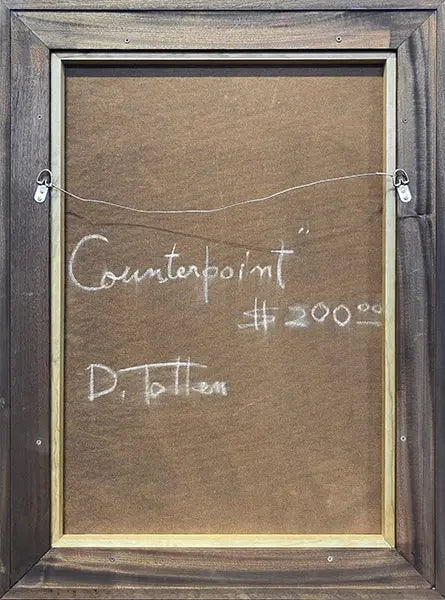 Counterpoint"
$200.00
D. Totten